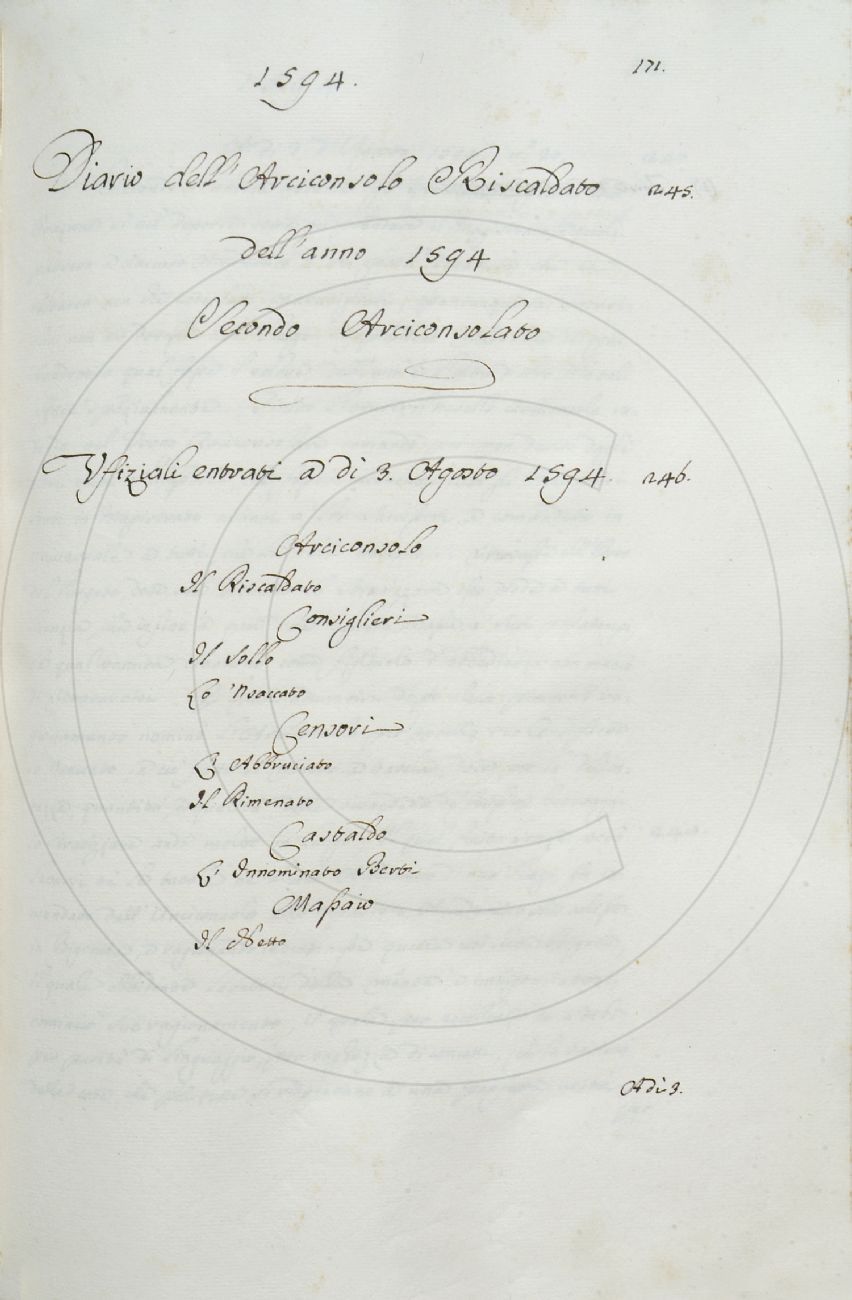 1594.
171.
Diario dell'Arciconsolo Riscaldato 245.
dell'anno 1594
Secondo Arciconsolato
Vfiziali entrati a di 3. Agosto 1594. 246.
Arciconsolo
Il Riscaldato
Consiglieri
Il Sollo
Lo 'Nsaccato
Censori
L' Abbruciato
Il Rimenato
Castaldo
L' Innominato Berti
Massaio
Il Netto
A di 3.